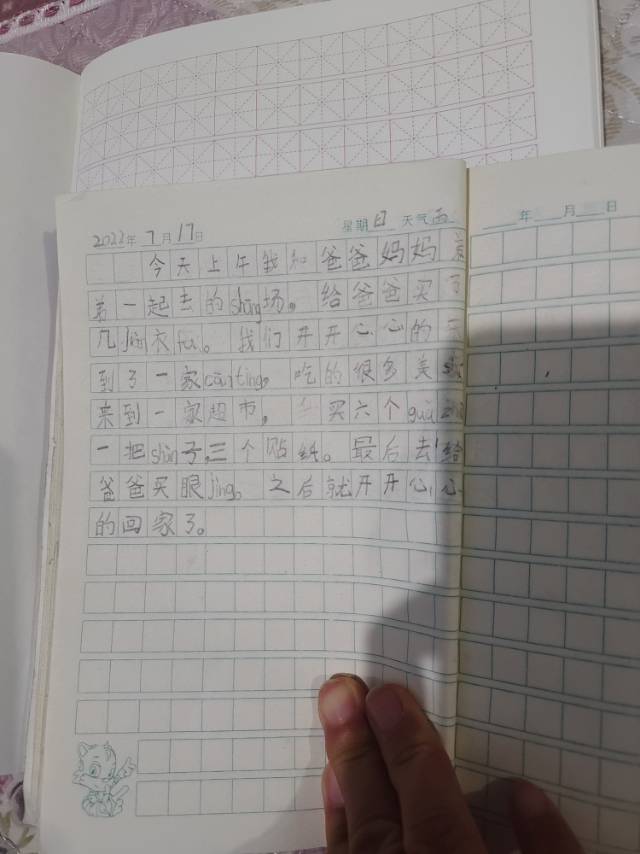 2022年7月17日 星期日 天气雨
今天上午我和爸爸妈妈
弟一起去的shāng场。给爸爸买了
几jiàn衣fu。我们开开心心的
到了一家cāntīng。吃的很多美
来到一家超市，买六个guà
一把shàn子,三个贴纸。最后去给
爸爸买眼jìng。之后就开开心心
的回家了。
年 月 日